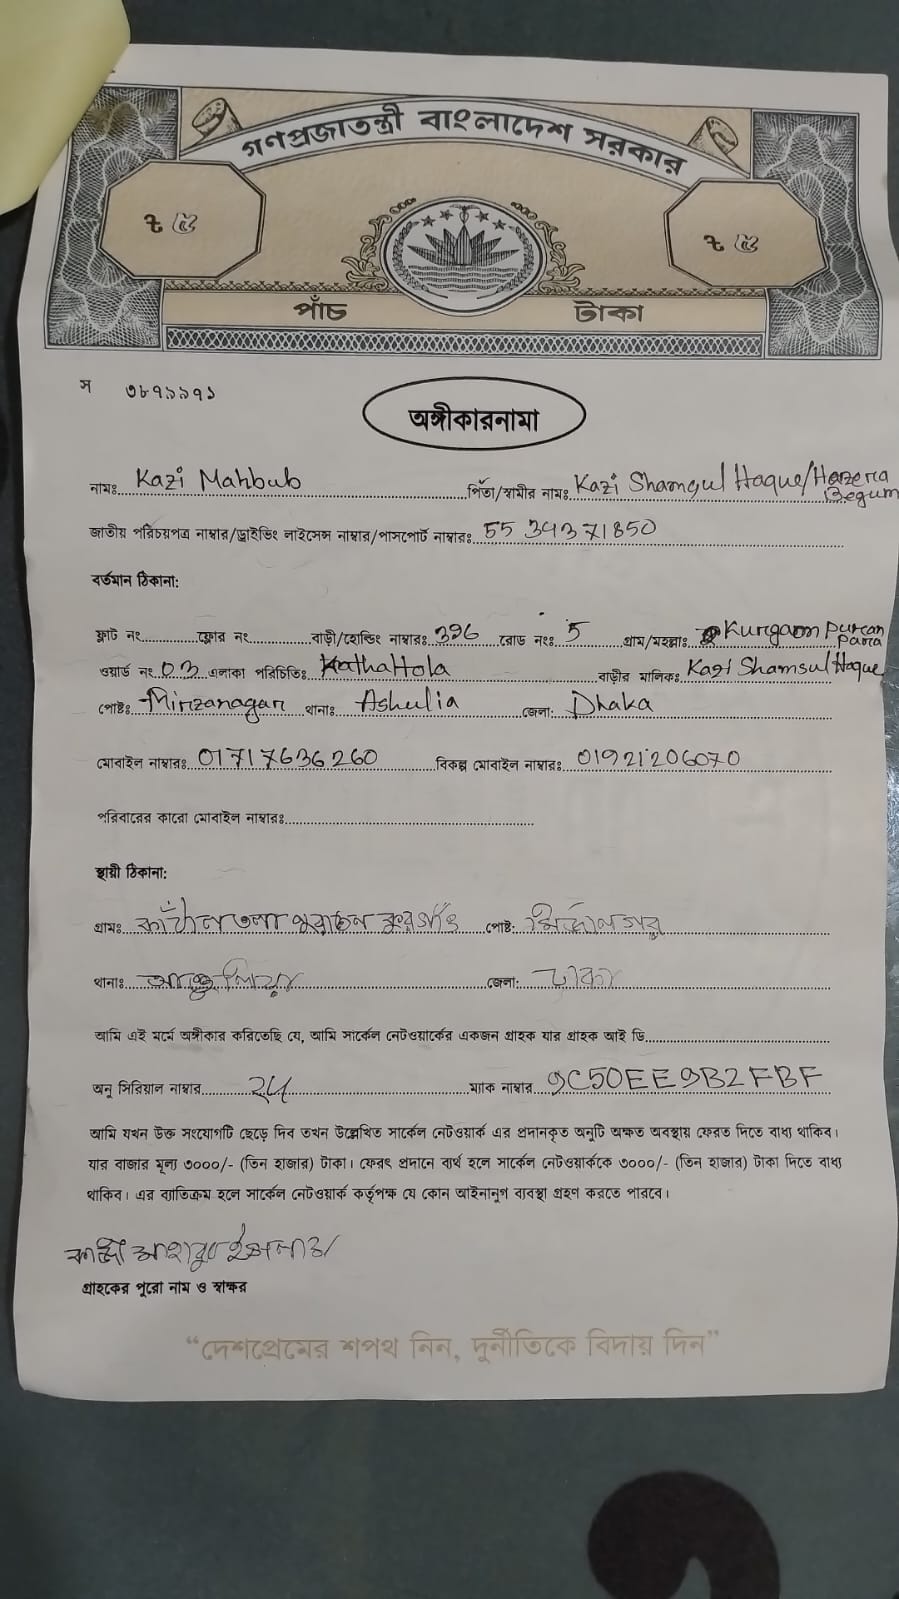 গণপ্রজাতন্ত্রী বাংলাদেশ সরকার
৳ ৫ ৳ ৫
পাঁচ টাকা
স ৩৮৭১৯৭১
অঙ্গীকারনামা
নামঃ Kazi Mahbub পিতা/স্বামীর নামঃ Kazi Shamsul Haque/Hazera Begum
জাতীয় পরিচয়পত্র নাম্বার/ড্রাইভিং লাইসেন্স নাম্বার/পাসপোর্ট নাম্বারঃ 55 34371850
বর্তমান ঠিকানা:
ফ্লাট নং ফ্লোর নং বাড়ী/হোল্ডিং নাম্বারঃ 396 রোড নংঃ 5 গ্রাম/মহল্লাঃ Kurgaon Puran Para
ওয়ার্ড নং 03 এলাকা পরিচিতিঃ KathalTola বাড়ীর মালিকঃ Kazi Shamsul Haque
পোষ্টঃ Mirzanagar থানাঃ Ashulia জেলা: Dhaka
মোবাইল নাম্বারঃ 01717636260 বিকল্প মোবাইল নাম্বারঃ 01921206070
পরিবারের কারো মোবাইল নাম্বারঃ
স্থায়ী ঠিকানা:
গ্রামঃ কাঁঠালতলা পুরাতন কুরগাঁও পোষ্ট: মির্জানগর
থানাঃ আশুলিয়া জেলা: ঢাকা
আমি এই মর্মে অঙ্গীকার করিতেছি যে, আমি সার্কেল নেটওয়ার্কের একজন গ্রাহক যার গ্রাহক আই ডি
অনু সিরিয়াল নাম্বার ম্যাক নাম্বার 9C50EE9B2FBF
আমি যখন উক্ত সংযোগটি ছেড়ে দিব তখন উল্লেখিত সার্কেল নেটওয়ার্ক এর প্রদানকৃত অনুটি অক্ষত অবস্থায় ফেরত দিতে বাধ্য থাকিব।
যার বাজার মূল্য ৩০০০/- (তিন হাজার) টাকা। ফেরৎ প্রদানে ব্যর্থ হলে সার্কেল নেটওয়ার্ককে ৩০০০/- (তিন হাজার) টাকা দিতে বাধ্য
থাকিব। এর ব্যতিক্রম হলে সার্কেল নেটওয়ার্ক কর্তৃপক্ষ যে কোন আইনানুগ ব্যবস্থা গ্রহণ করতে পারবে।
কাজী মাহাবুব
গ্রাহকের পুরো নাম ও স্বাক্ষর
“দেশপ্রেমের শপথ নিন, দুর্নীতিকে বিদায় দিন”